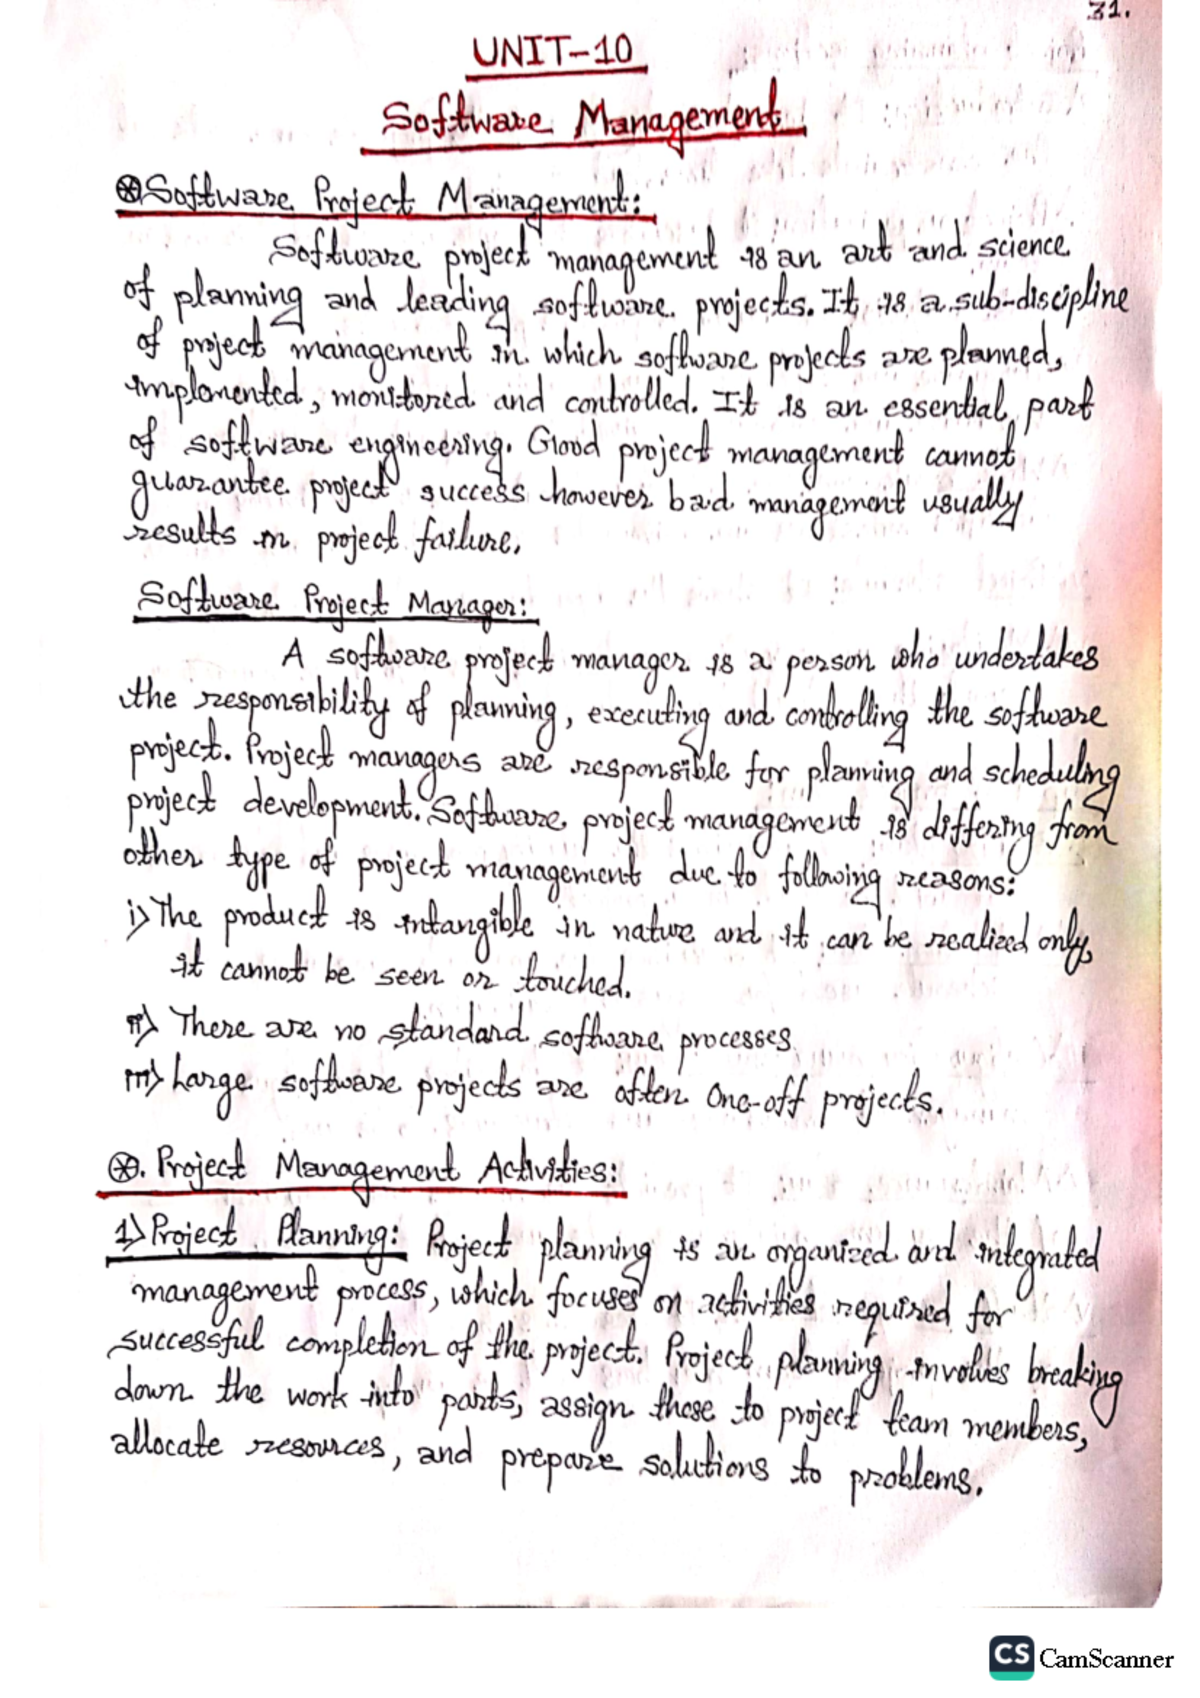 31.
UNIT-10
Software Management
⊛Software Project Management:
Software project management is an art and science
of planning and leading software projects. It is a sub-discipline
of project management in which software projects are planned,
implemented, monitored and controlled. It is an essential part
of software engineering. Good project management cannot
guarantee project success however bad management usually
results in project failure.
Software Project Manager:
A software project manager is a person who undertakes
the responsibility of planning, executing and controlling the software
project. Project managers are responsible for planning and scheduling
project development. Software project management is differing from
other type of project management due to following reasons:
i) The product is intangible in nature and it can be realized only,
it cannot be seen or touched.
ii) There are no standard software processes.
iii) Large software projects are often one-off projects.
⊛. Project Management Activities:
1) Project Planning: Project planning is an organized and integrated
management process, which focuses on activities required for
successful completion of the project. Project planning involves breaking
down the work into parts, assign these to project team members,
allocate resources, and prepare solutions to problems.
CS CamScanner